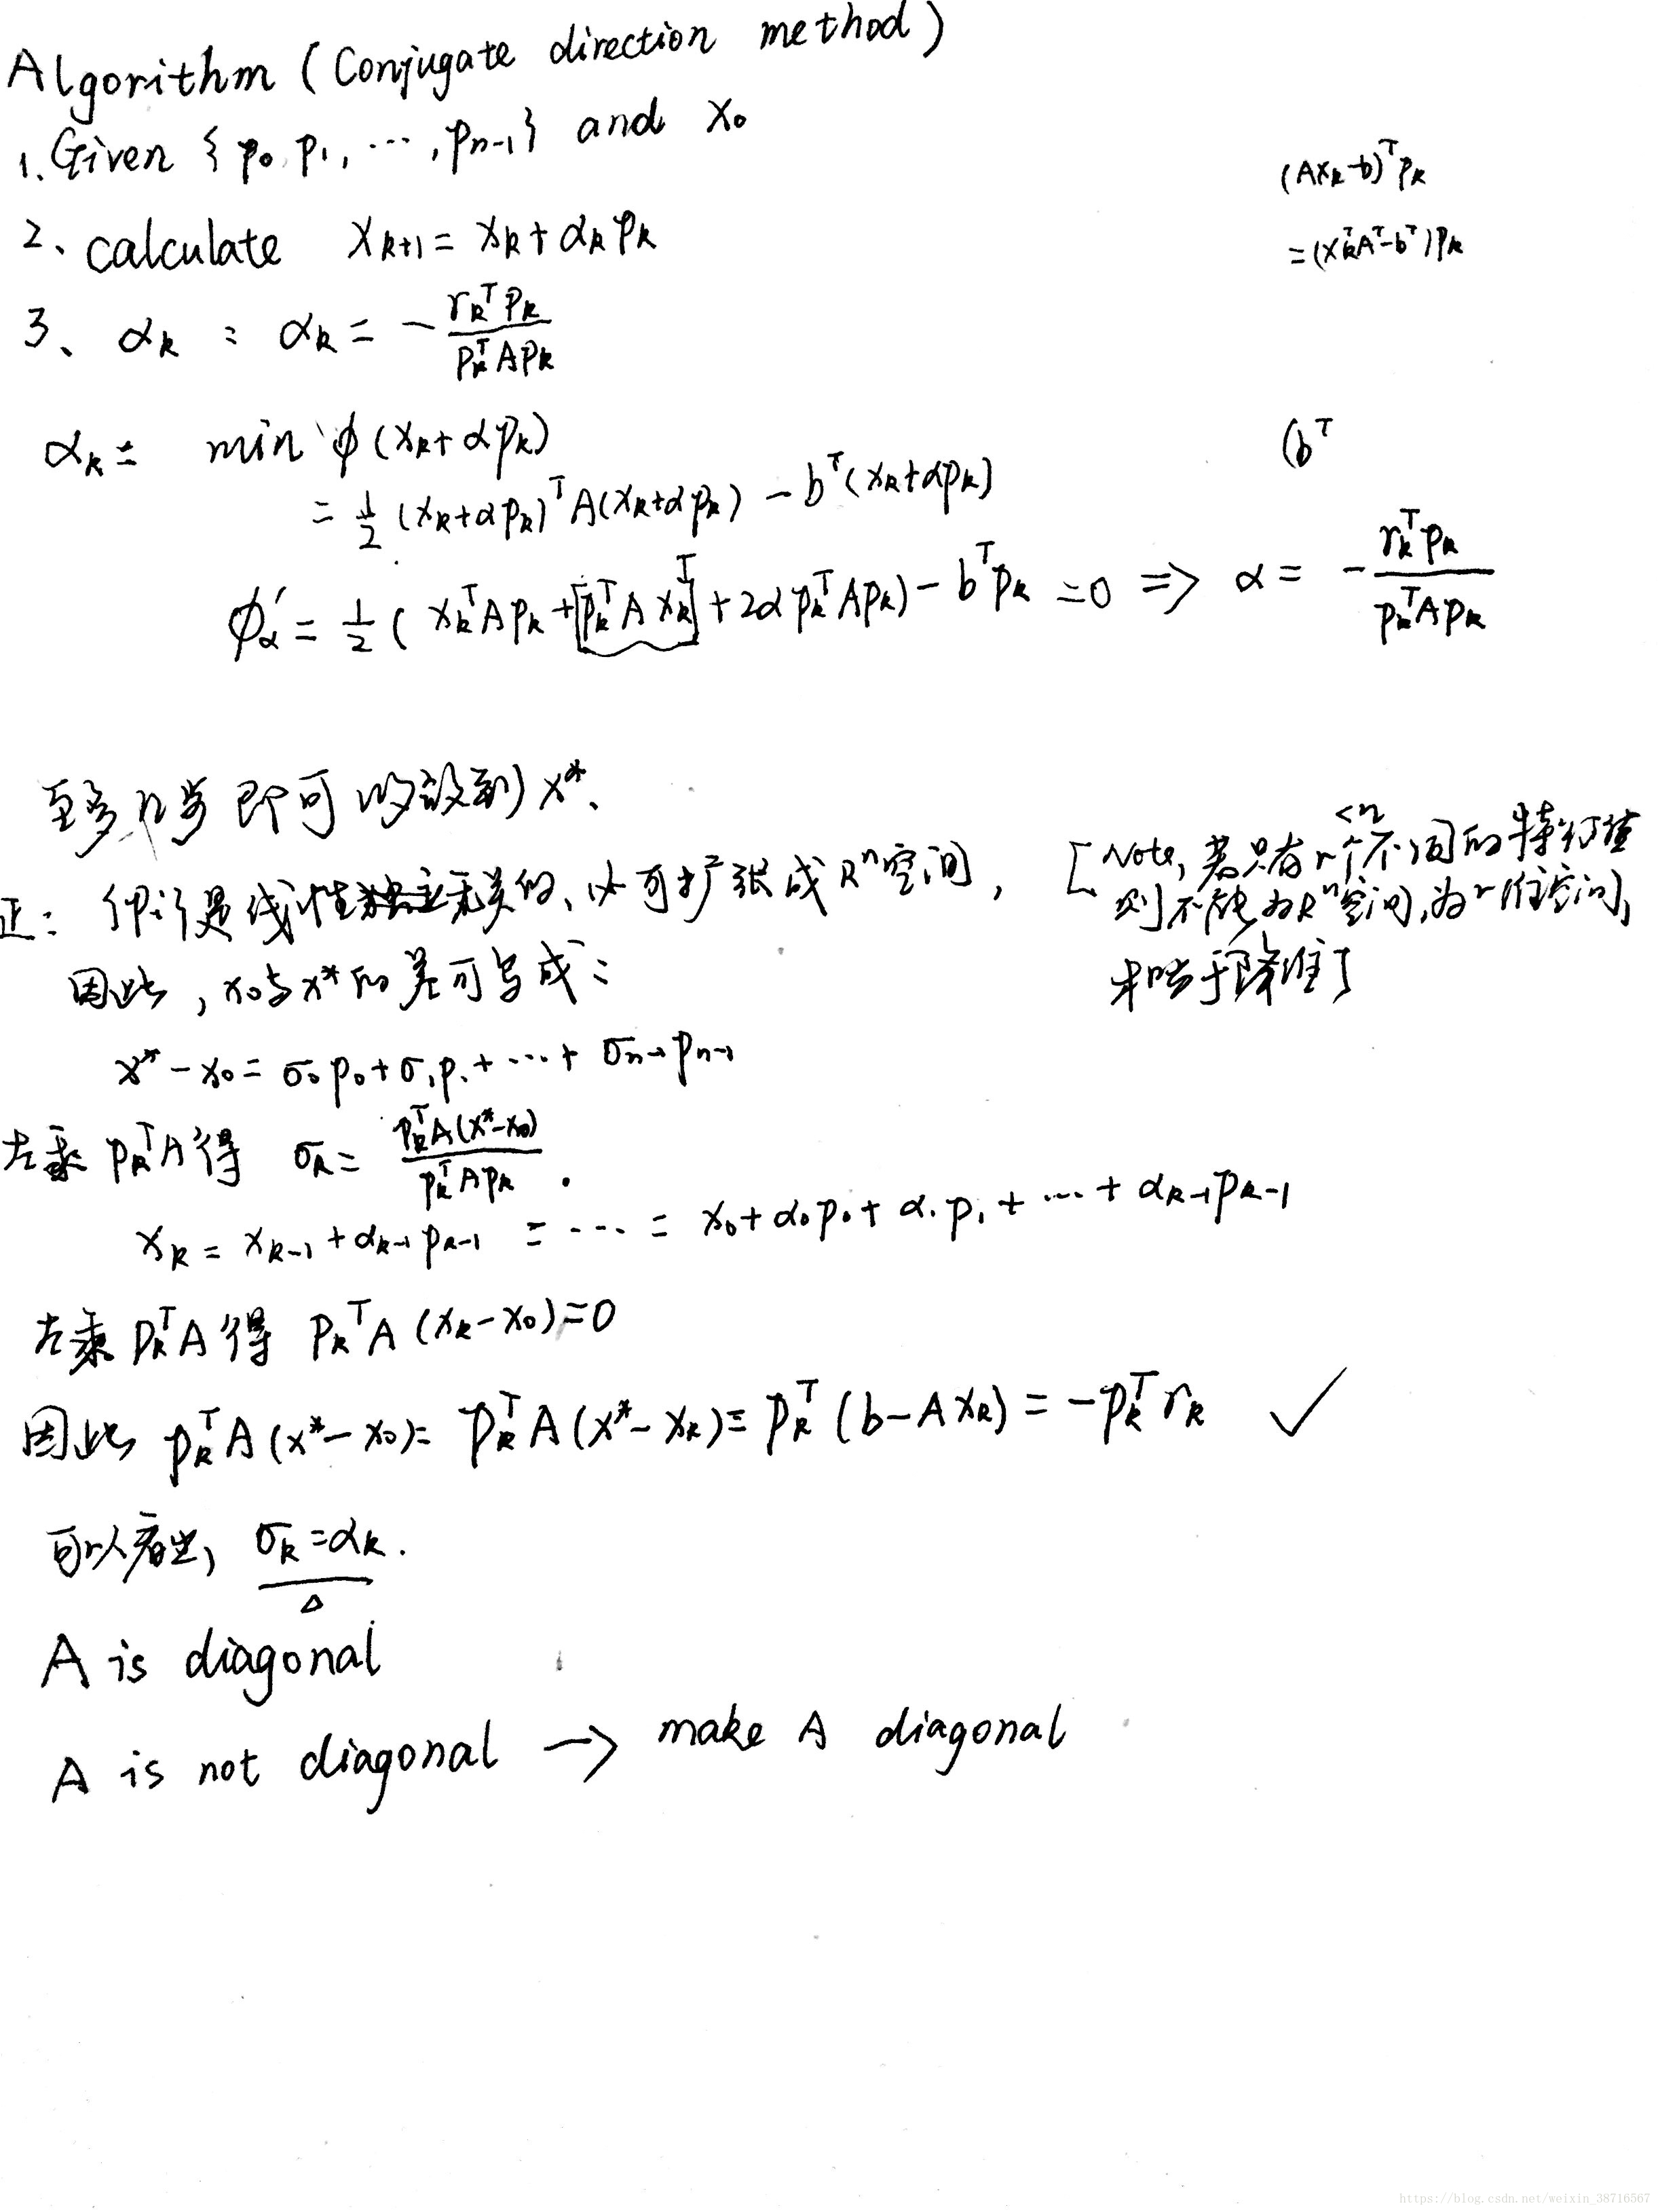 Algorithm (Conjugate direction method)
1. Given {p₀, p₁, ⋯, pₙ₋₁} and x₀
(Axₖ-b)ᵀpₖ
2、calculate xₖ₊₁ = xₖ + αₖpₖ
=(xₖᵀAᵀ-bᵀ)pₖ
3、αₖ : αₖ = - rₖᵀpₖ / pₖᵀApₖ
αₖ = min φ(xₖ+αpₖ)
(bᵀ
= 1/2 (xₖ+αpₖ)ᵀA(xₖ+αpₖ) - bᵀ(xₖ+αpₖ)
φ'α = 1/2 ( xₖᵀApₖ + [pₖᵀAxₖ]ᵀ + 2αpₖᵀApₖ) - bᵀpₖ = 0 => α = - rₖᵀpₖ / pₖᵀApₖ
至多n步即可收敛到x*、
正: 是线性无关的、必可扩张成Rⁿ空间,
[Note, 若只有r个不同的特征值 <n
则不能为Rⁿ空间,为r维空间,
相当于降维了
因此,x₀与x*的差可写成:
x*-x₀ = σ₀p₀+σ₁p₁+⋯+σₙ₋₁pₙ₋₁
左乘pₖᵀA得 σₖ = pₖᵀA(x*-x₀) / pₖᵀApₖ .
xₖ = xₖ₋₁ + αₖ₋₁pₖ₋₁ = ⋯ = x₀+α₀p₀+α₁p₁+⋯+αₖ₋₁pₖ₋₁
左乘pₖᵀA得 pₖᵀA(xₖ-x₀)=0
因此 pₖᵀA(x*-x₀) = pₖᵀA(x*-xₖ) = pₖᵀ(b-Axₖ) = -pₖᵀrₖ ✓
可以看出, σₖ=αₖ.
Δ
A is diagonal
A is not diagonal → make A diagonal
https://blog.csdn.net/weixin_38716567